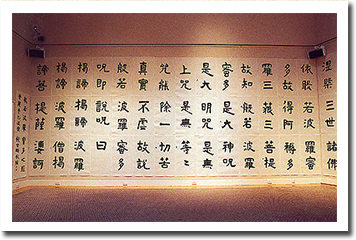 涅槃三世諸佛
依般若波羅蜜
多故得阿耨多
羅三藐三菩提
故知般若波羅
蜜多是大神咒
是大明咒是無
上咒是無等々
咒能除一切苦
真實不虛故說
般若波羅蜜多
咒即說咒曰
揭諦揭諦波羅
揭諦波羅僧揭
諦菩提薩婆訶